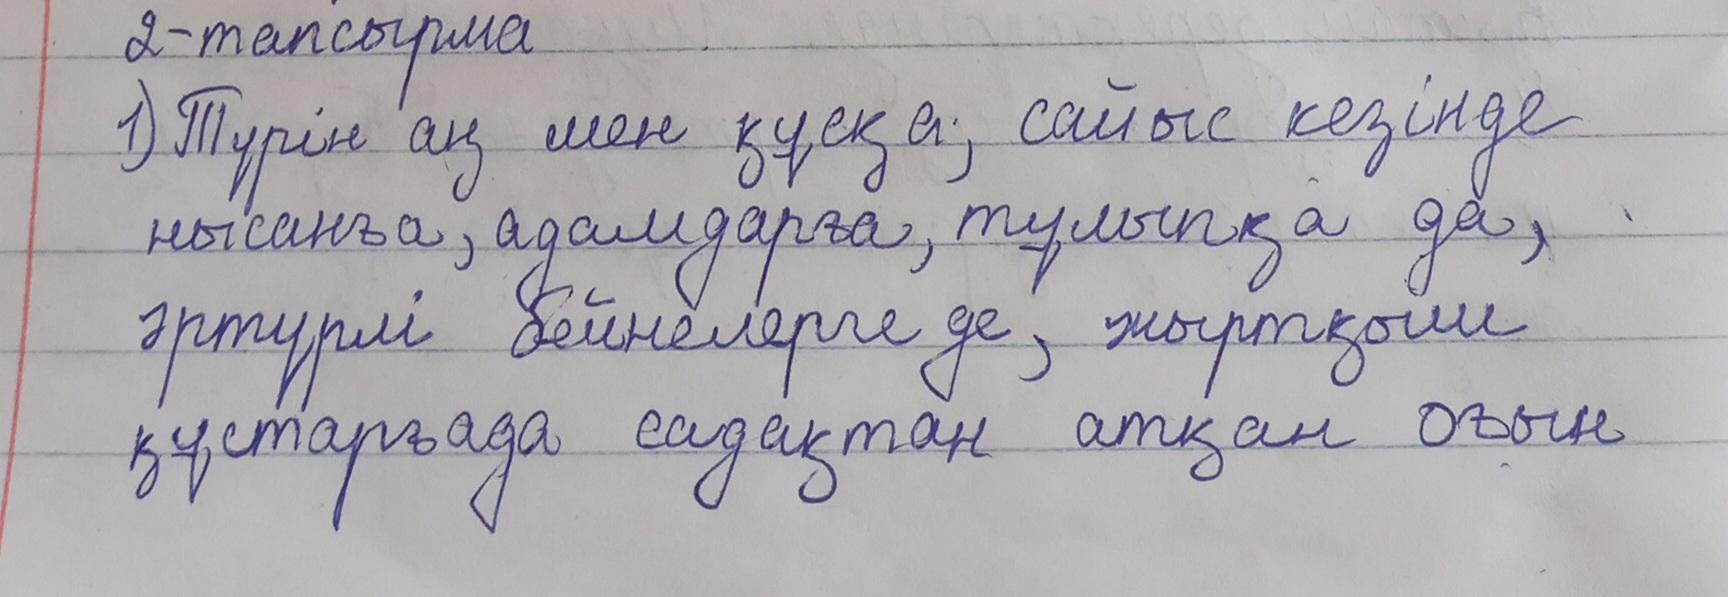 2-тапсырма
1) Түрін аң мен құсқа, сайыс кезінде
нысанға, адамдарға, тұлыпқа да,
әртүрлі бейнелерге де, жыртқыш
құстарғада садақтан атқан оғын